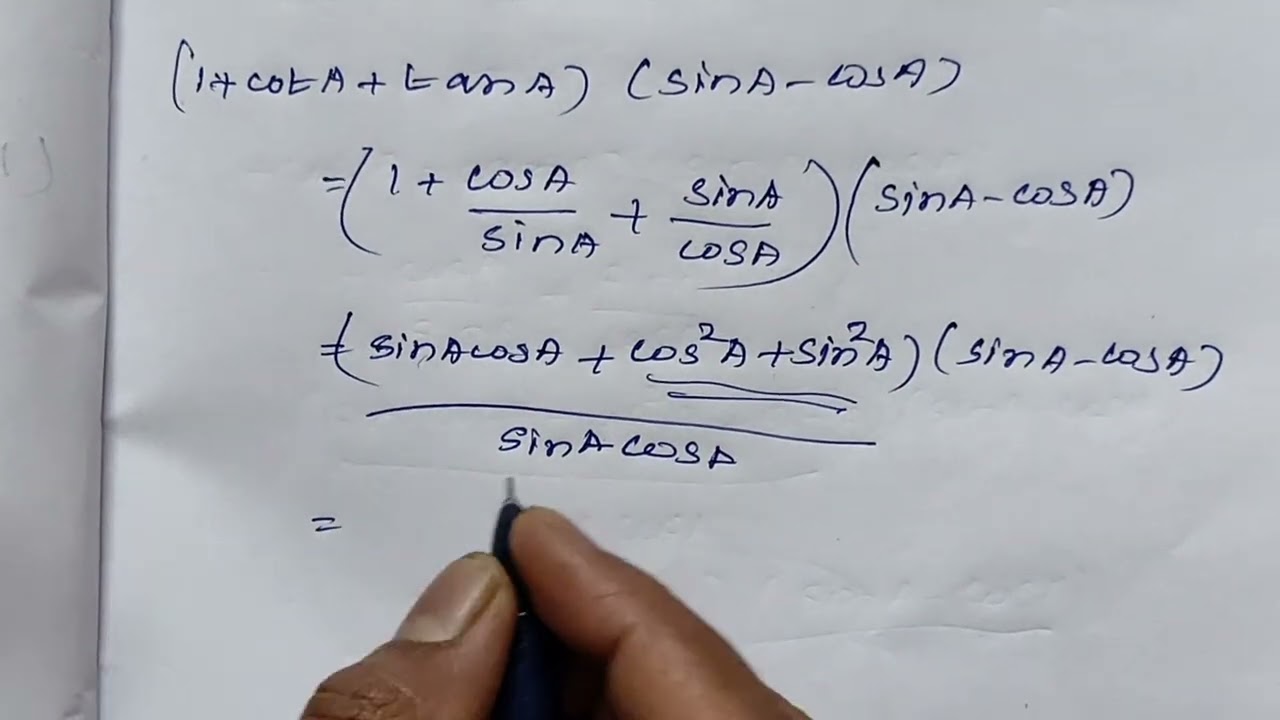 (1+cotA+tanA) (sinA-cosA)
=(1+cosA/sinA+sinA/cosA)(sinA-cosA)
=(sinAcosA+cos²A+sin²A)(sinA-cosA)
sinAcosA
=